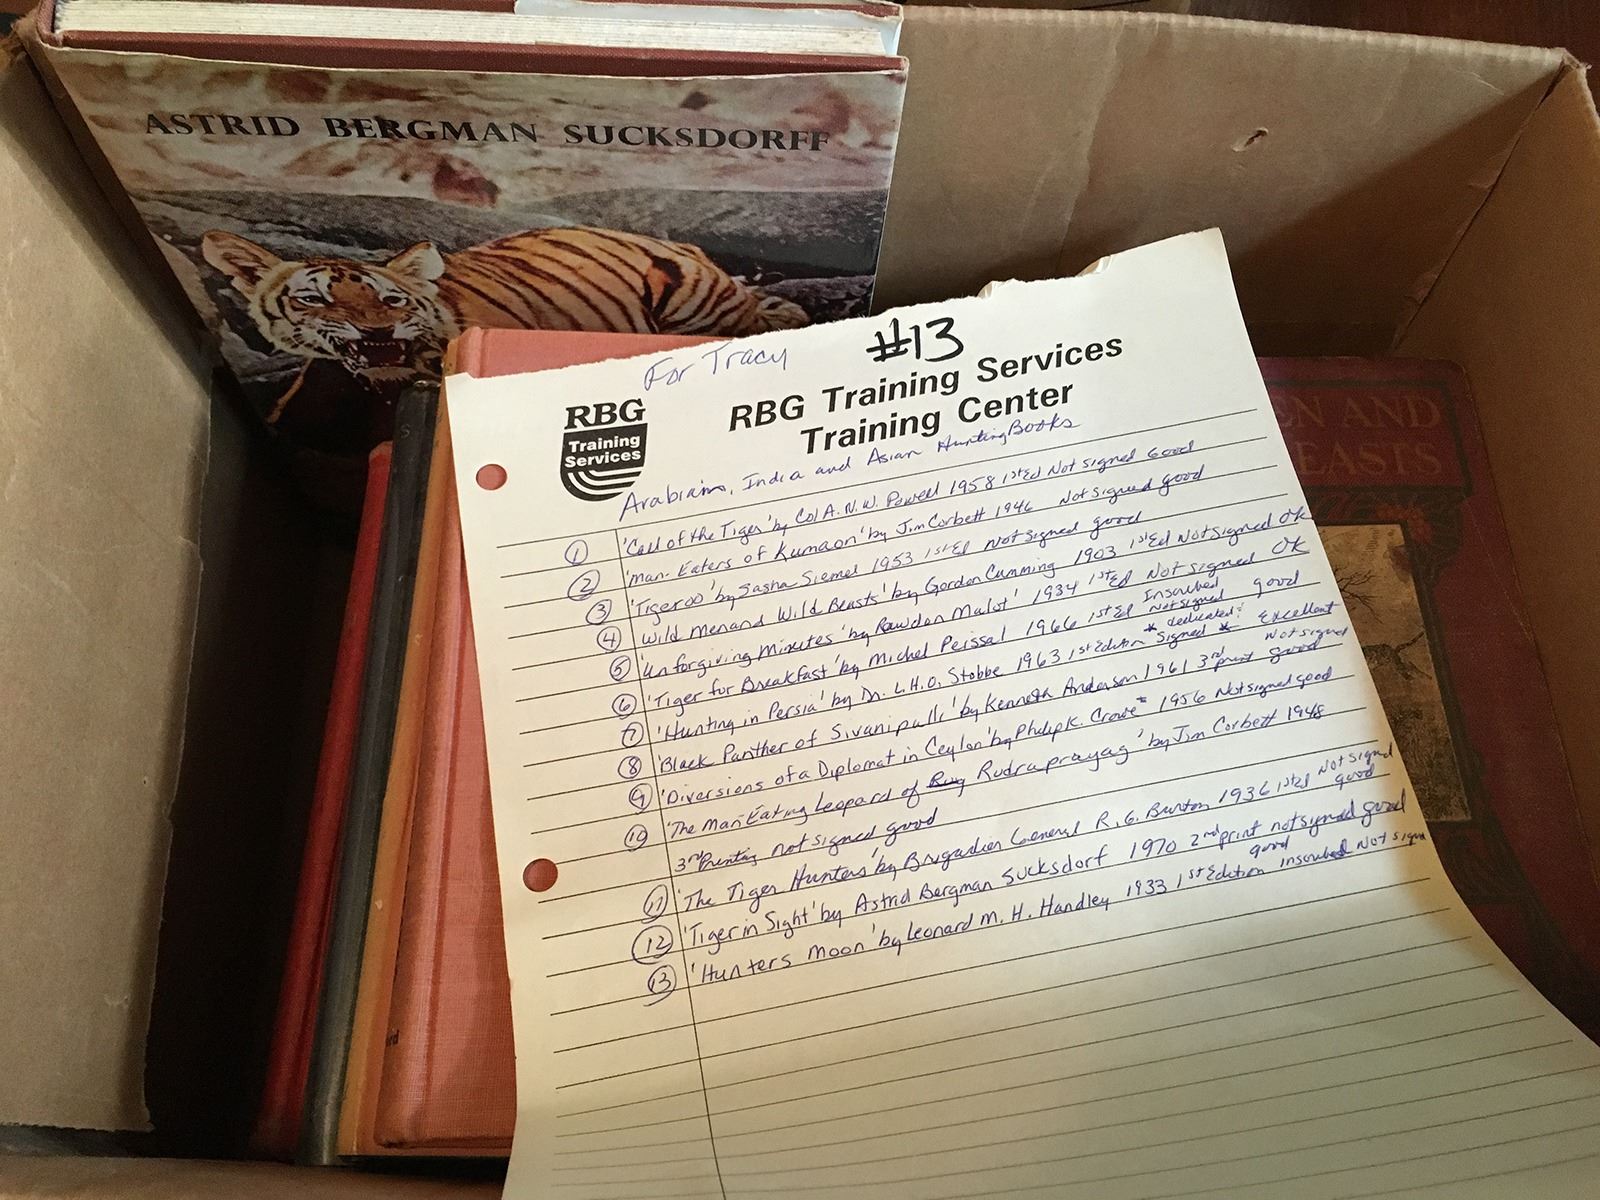 ASTRID BERGMAN SUCKSDORFF
For Tracy
#13
RBG
Training
Services
RBG Training Services
Training Center
Arabian, India and Asian Hunting Books
① 'Call of the Tiger' by Col A. N. W. Powell 1958 1st Ed Not Signed Good
② 'Man-Eaters of Kumaon' by Jim Corbett 1946 Not signed good
③ 'Tigeroo' by Sasha Siemel 1953 1st Ed Not Signed good
④ 'Wild Men and Wild Beasts' by Gordon Cumming 1903 1st Ed Not Signed OK
⑤ 'Unforgiving Minutes' by 1934 1st Ed Not signed OK
⑥ 'Tiger for Breakfast' by Michel Peissal 1966 1st Ed Inscribed Not signed good
⑦ 'Hunting in Persia' by Dr. L.H.O. Stobbe 1963 1st Edition * dedicated & Signed * Excellent
⑧ 'Black Panther of Sivanipalli' by Kenneth Anderson 1961 3rd print good Not signed
⑨ 'Diversions of a Diplomat in Ceylon' by Philip K. Crowe 1956 Not signed good
⑩ 'The Man-Eating Leopard of Rudraprayag' by Jim Corbett 1948
3rd Printing not signed good
⑪ 'The Tiger Hunters' by Brigadier General R. G. Burton 1936 1st Ed Not Signed good
⑫ 'Tiger in Sight' by Astrid Bergman Sucksdorf 1970 2nd print not signed good
⑬ 'Hunters Moon' by Leonard M. H. Handley 1933 1st Edition good inscribed Not sign
EN AND
EASTS